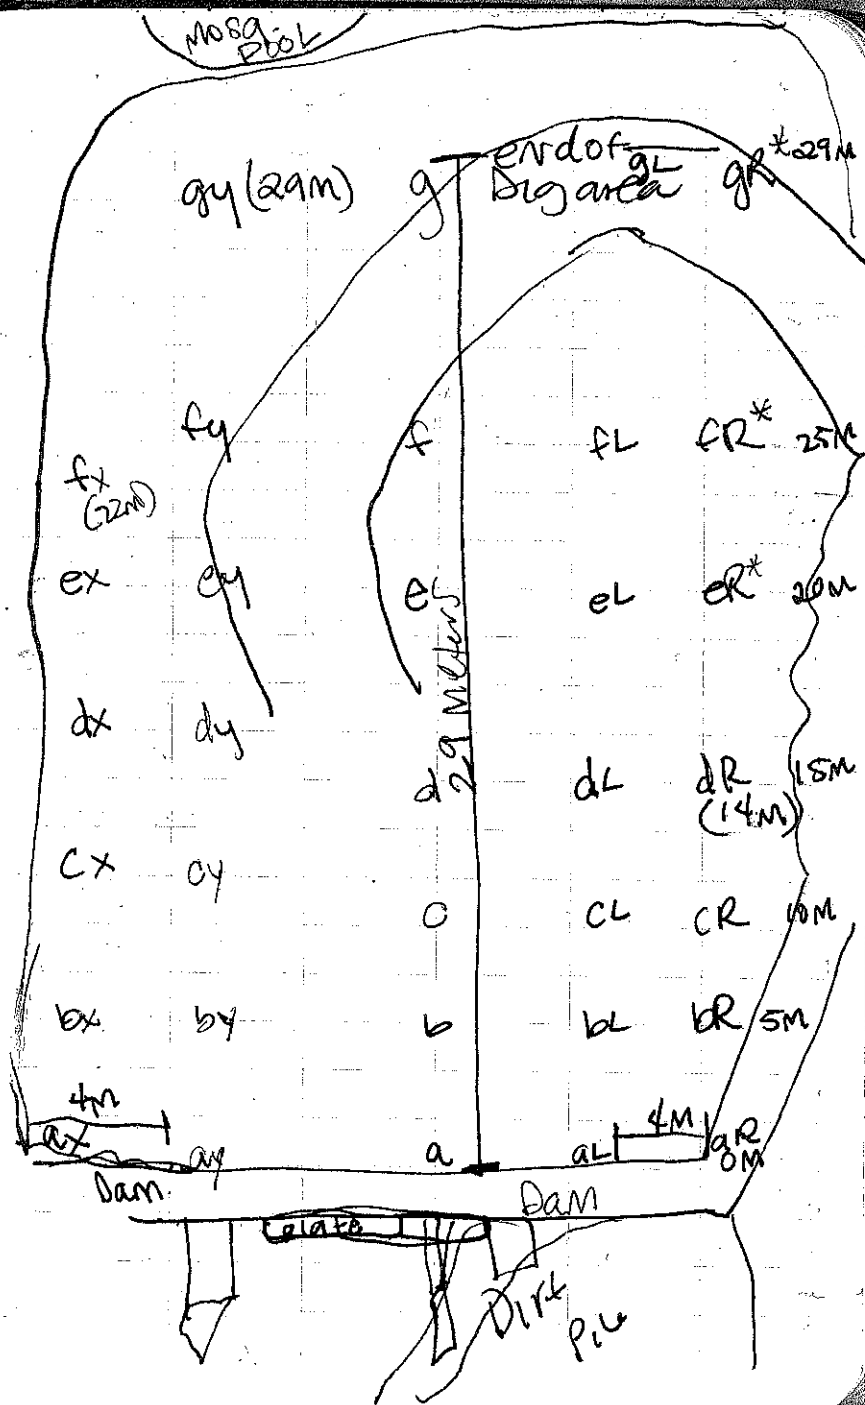 Mosq.
POOL
gy (29m) g end of gL gR* 29M
Dig area
fy f fL fR* 25M
fx
(22m)
ex ey e eL eR* 20M
29 Meters
dx dy d dL dR 15M
(14M)
cx cy c cL cR 10M
bx by b bL bR 5M
4M 4M
ax ay a aL aR
0M
Dam Dam
plate
Dirt
Pile